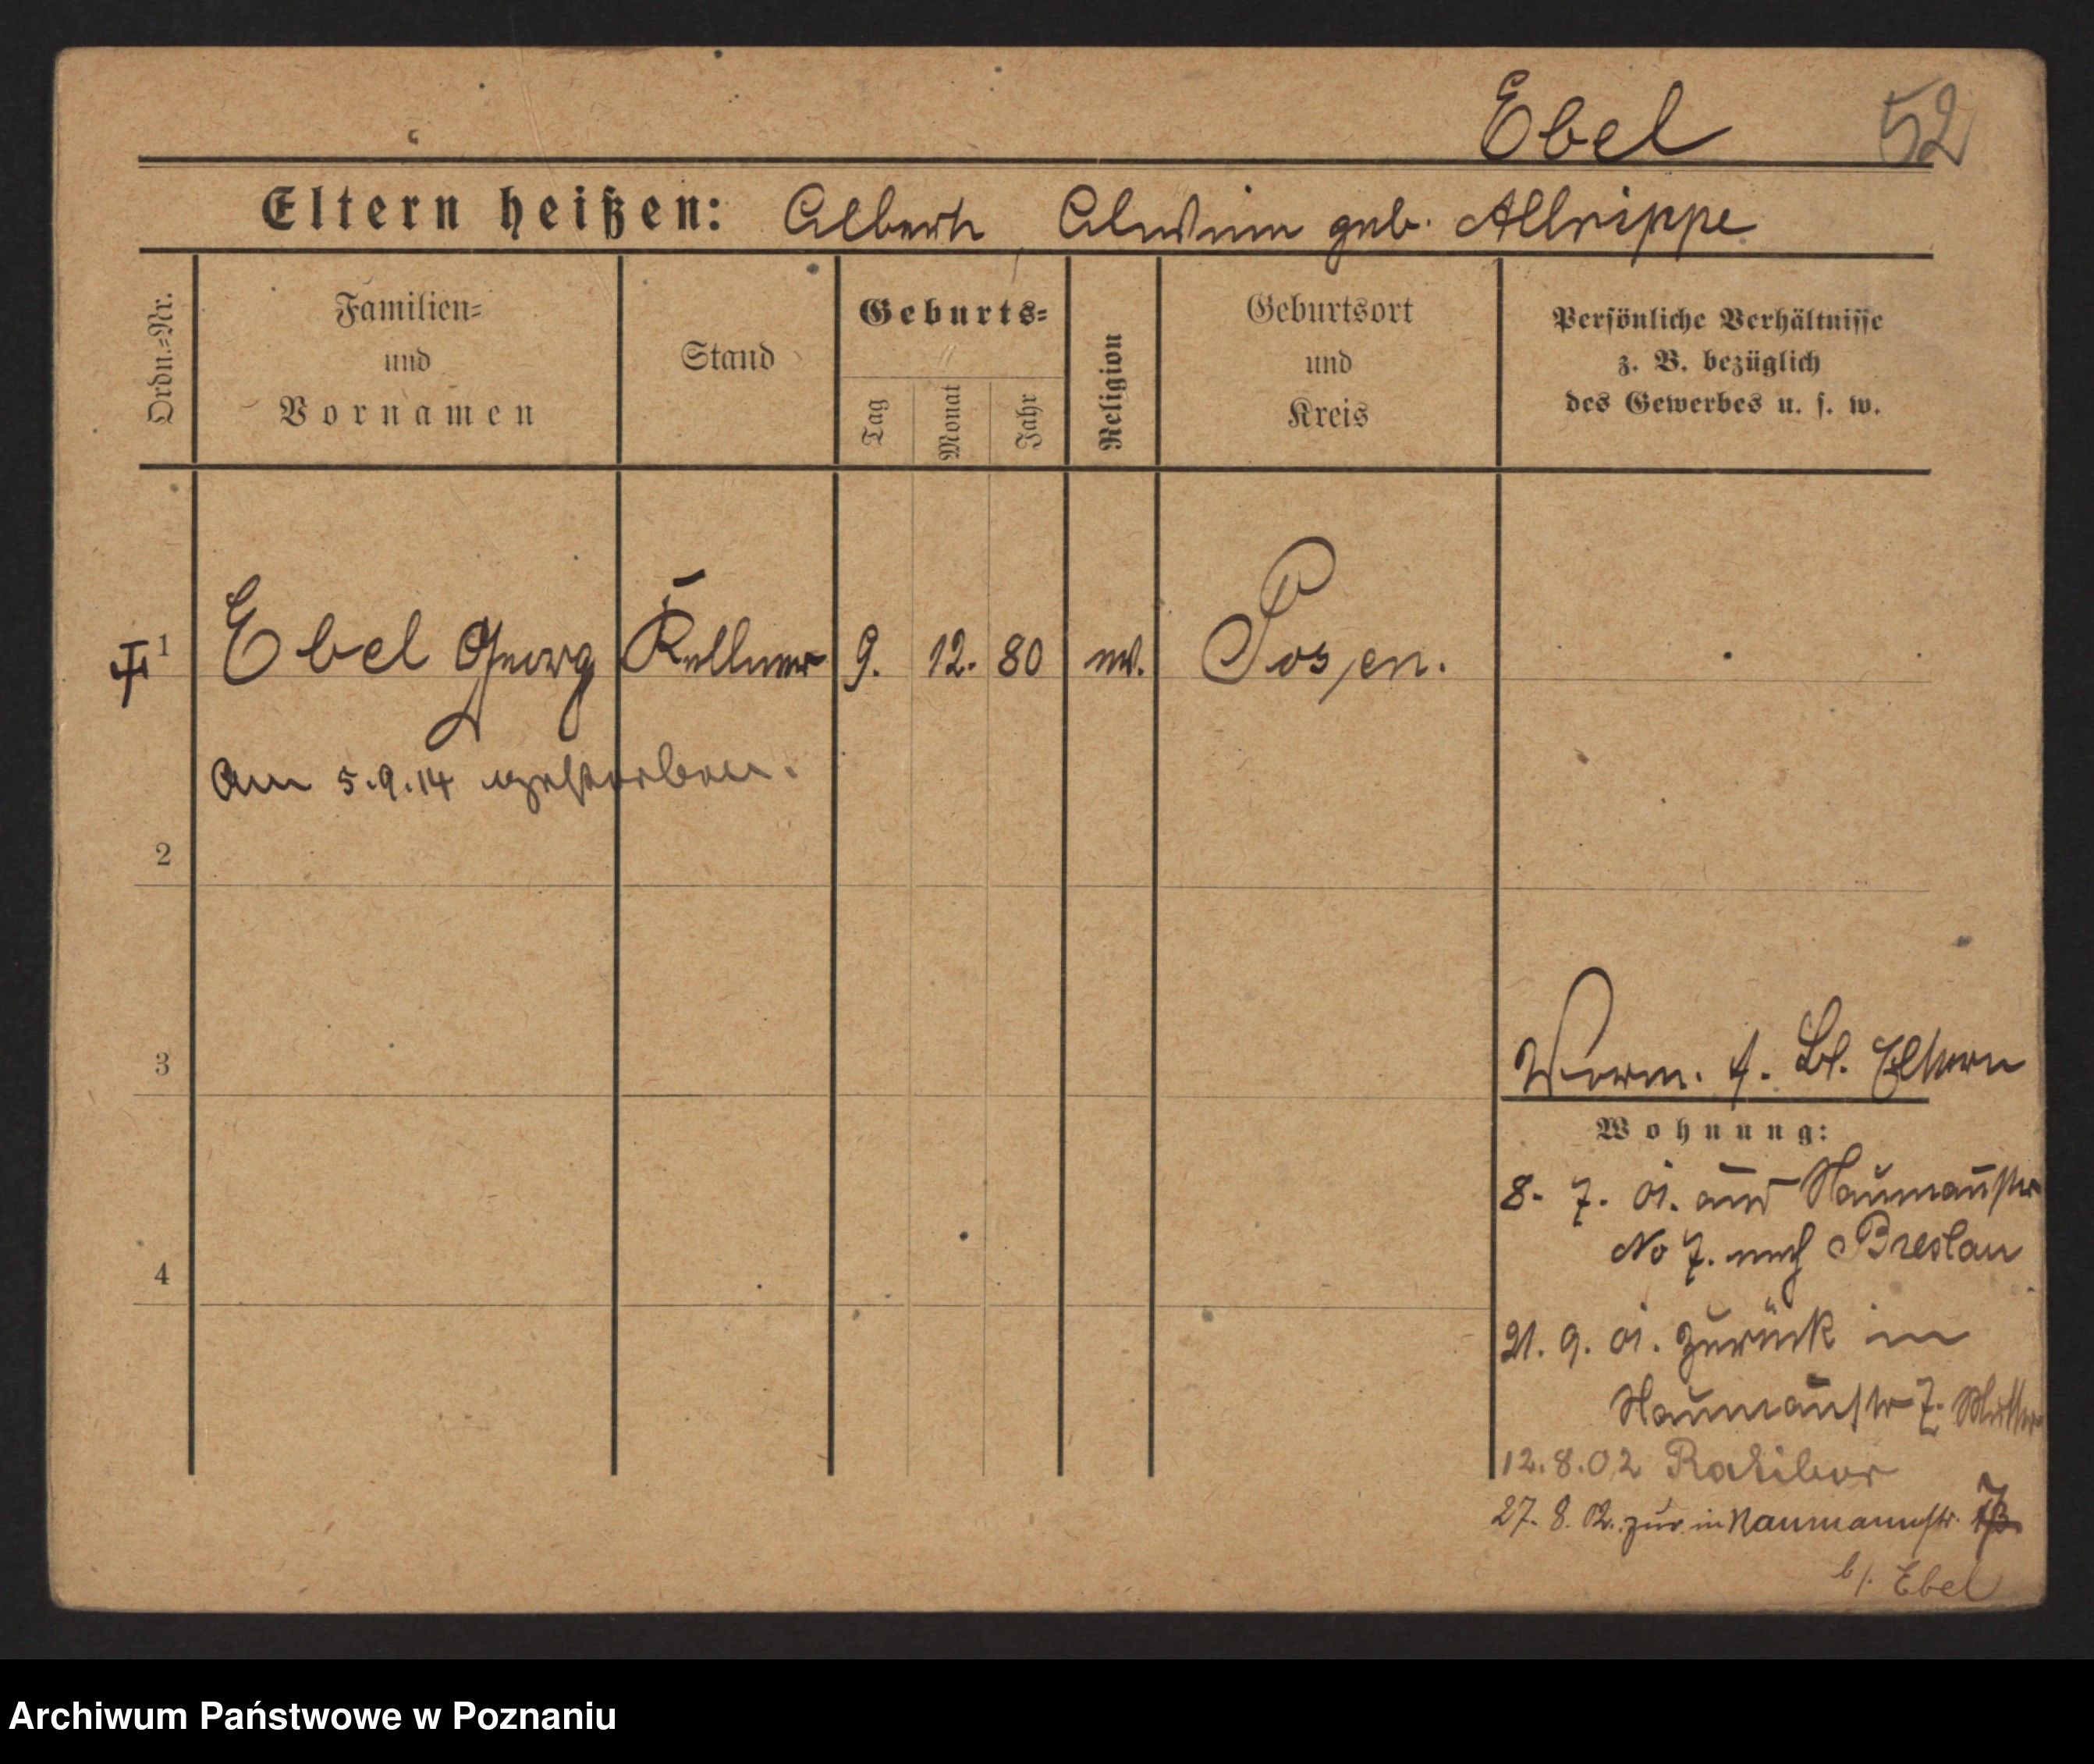 Ebel 52
Eltern heißen: Albert, Alwine geb. Allrippe
Ordn.=Nr.
Familien=
und
Vornamen
Stand
Geburts=
Tag
Monat
Jahr
Religion
Geburtsort
und
Kreis
Persönliche Verhältnisse
z. B. bezüglich
des Gewerbes u. s. w.
1 Ebel Georg Kellner 9. 12. 80 ev. Posen.
am 5.9.14 gestorben.
2
3
Eltern
Wohnung:
8. 7. 01. aus Naumañstr
No 7. nach Breslau
4
21. 9. 01. zurück in
Naumañstr 7. Mutter
12.8.02 Ratibor
27. 8. 02. zur. in Naumannstr. 7
b/. Ebel
Archiwum Państwowe w Poznaniu